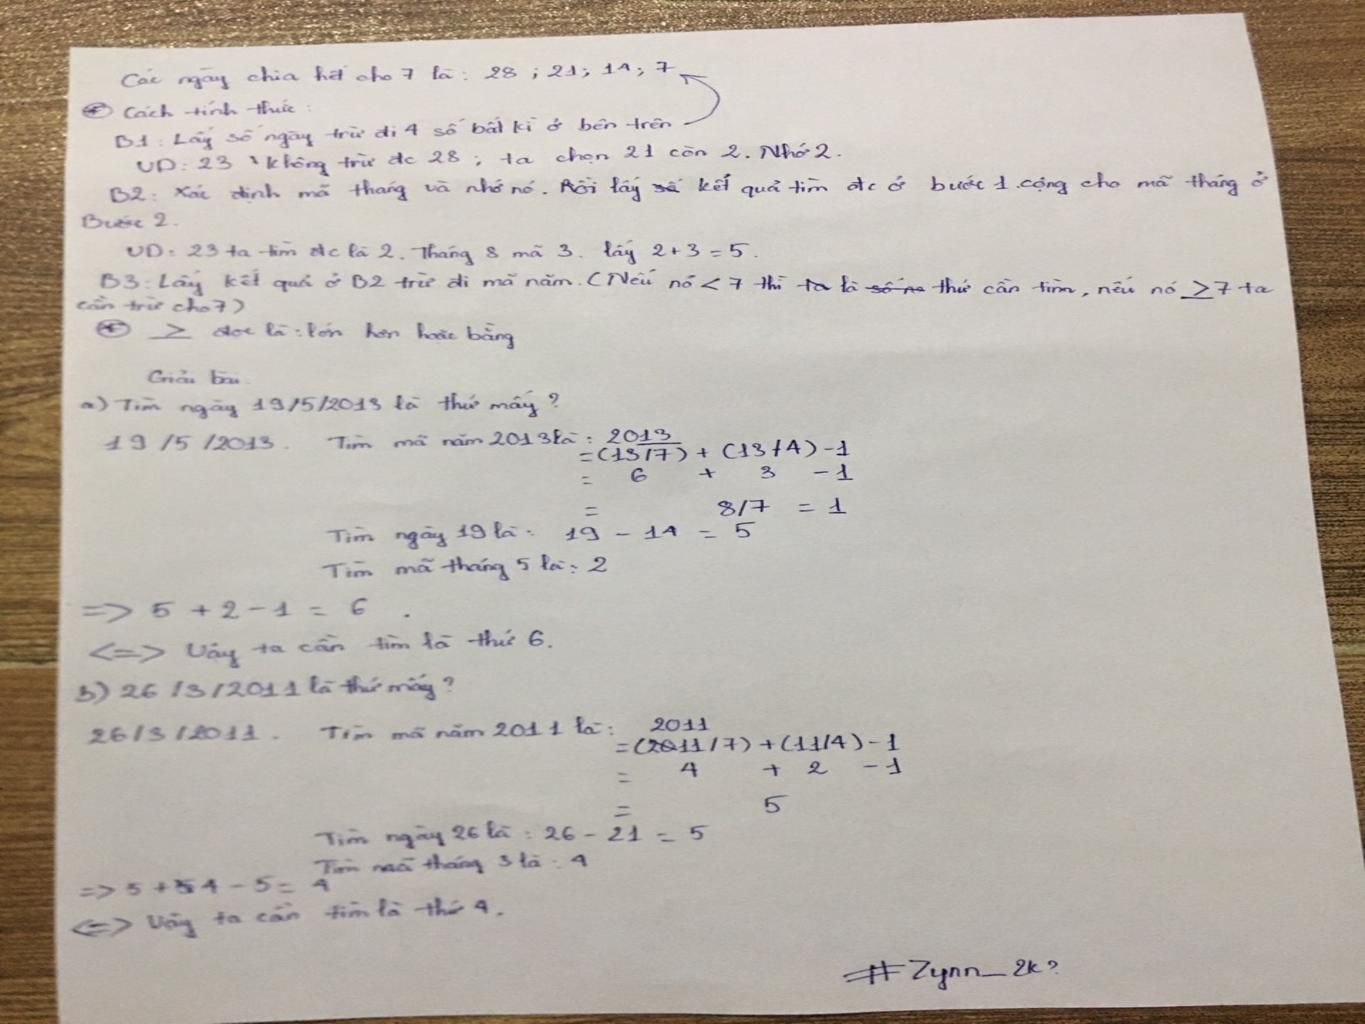 Các ngày chia hết cho 7 là: 28 ; 21; 14; 7
* Cách tính thức:
B1: Lấy số ngày trừ đi 4 số bất kì ở bên trên
VD: 23 không trừ đc 28 ; ta chọn 21 còn 2. Nhớ 2.
B2: Xác định mã tháng và nhớ nó. Rồi lấy số kết quả tìm đc ở bước 1 cộng cho mã tháng ở
Bước 2.
VD: 23 ta tìm đc là 2. Tháng 8 mã 3. lấy 2+3 = 5.
B3: Lấy kết quả ở B2 trừ đi mã năm. (Nếu nó < 7 thì ta là thứ cần tìm, nếu nó ≥ 7 ta
cần trừ cho 7)
* ≥ đọc là: lớn hơn hoặc bằng
Giải bài
a) Tìm ngày 19/5/2013 là thứ mấy?
19/5/2013. Tìm mã năm 2013 là: 2013
= (13/7) + (13/4) - 1
= 6 + 3 - 1
= 8/7 = 1
Tìm ngày 19 là: 19 - 14 = 5
Tìm mã tháng 5 là: 2
=> 5 + 2 - 1 = 6 .
<=> Vậy ta cần tìm là thứ 6.
b) 26/3/2011 là thứ mấy?
26/3/2011. Tìm mã năm 2011 là: 2011
= (2011/7) + (11/4) - 1
= 4 + 2 - 1
= 5
Tìm ngày 26 là: 26 - 21 = 5
Tìm mã tháng 3 là: 4
=> 5 + 4 - 5 = 4
<=> Vậy ta cần tìm là thứ 4.
#Zynn_2k?